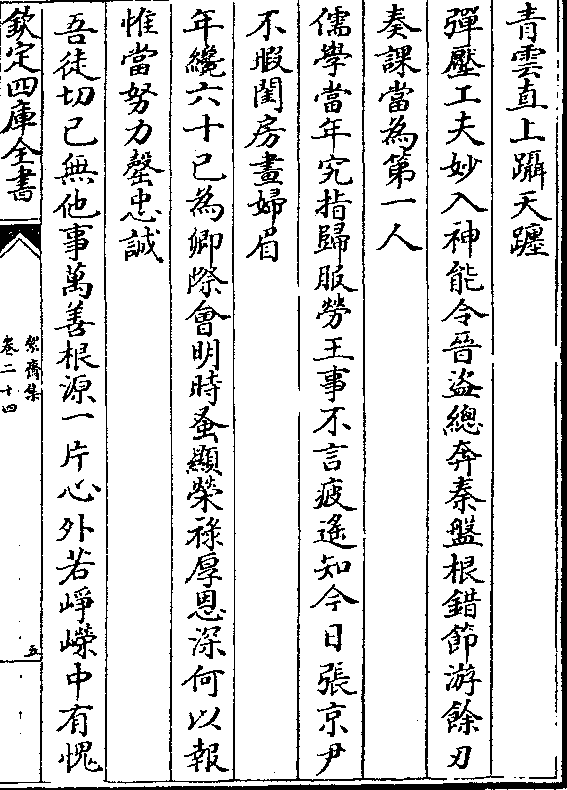 青雲直上躡天躔
彈壓工夫妙入神能令晉盗總奔秦盤根錯節游餘刃
奏課當為第一人
儒學當年究指歸服勞王事不言疲遥知今日張京尹
不暇閨房畫婦眉
年纔六十已為卿際會明時蚤顯榮禄厚恩深何以報
惟當努力罄忠誠
吾徒切己無他事萬善根源一片心外若崢嶸中有愧
欽定四庫全書
絜齋集
卷二十四
五